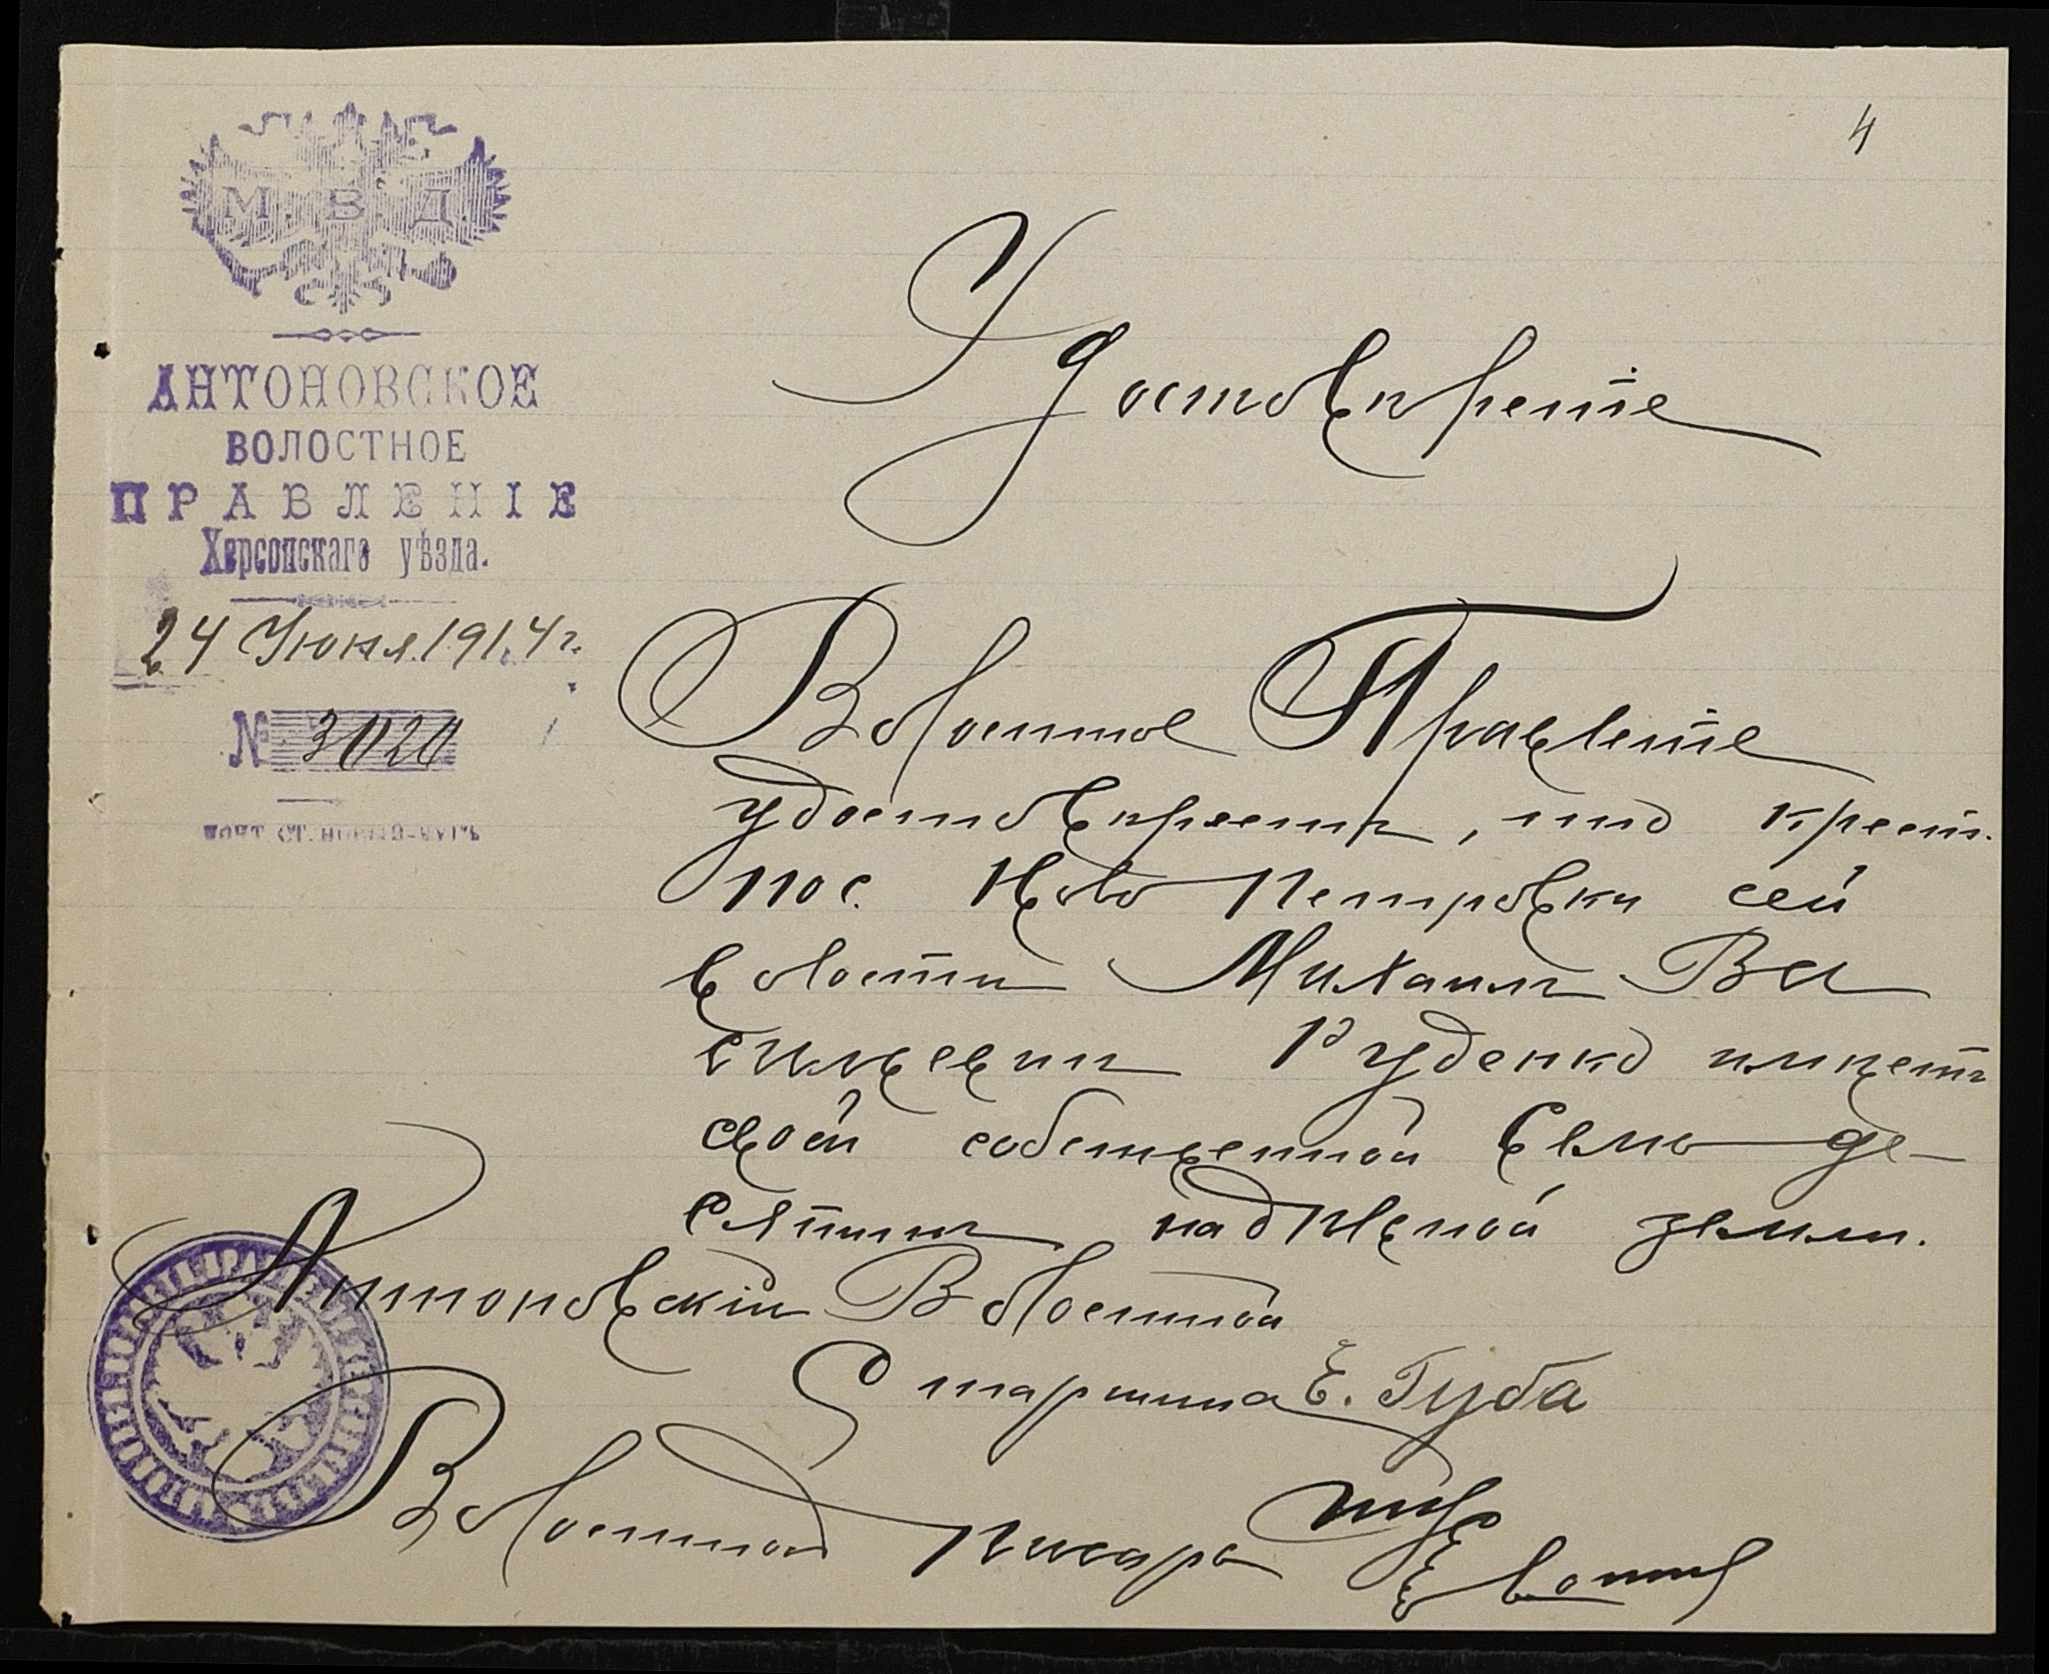 4
М. В. Д.
АНТОНОВСКОЕ
ВОЛОСТНОЕ
ПРАВЛЕНІЕ
Херсонскаго уѣзда.
24 Июня 1914 г.
№ 3020
ПОЧТ. СТ. НОВЫЙ-БУГЪ
Удостовѣреніе
Волостное Правленіе
удостовѣряетъ, что крест.
пос. Ново Петровки сей
волости Михаилъ Ва
сильевичъ Руденко имѣетъ
свой собственной восемь де-
сятинъ надѣльной земли.
Антоновскій Волостной
Старшина Е. Губа
Волостной Писарь